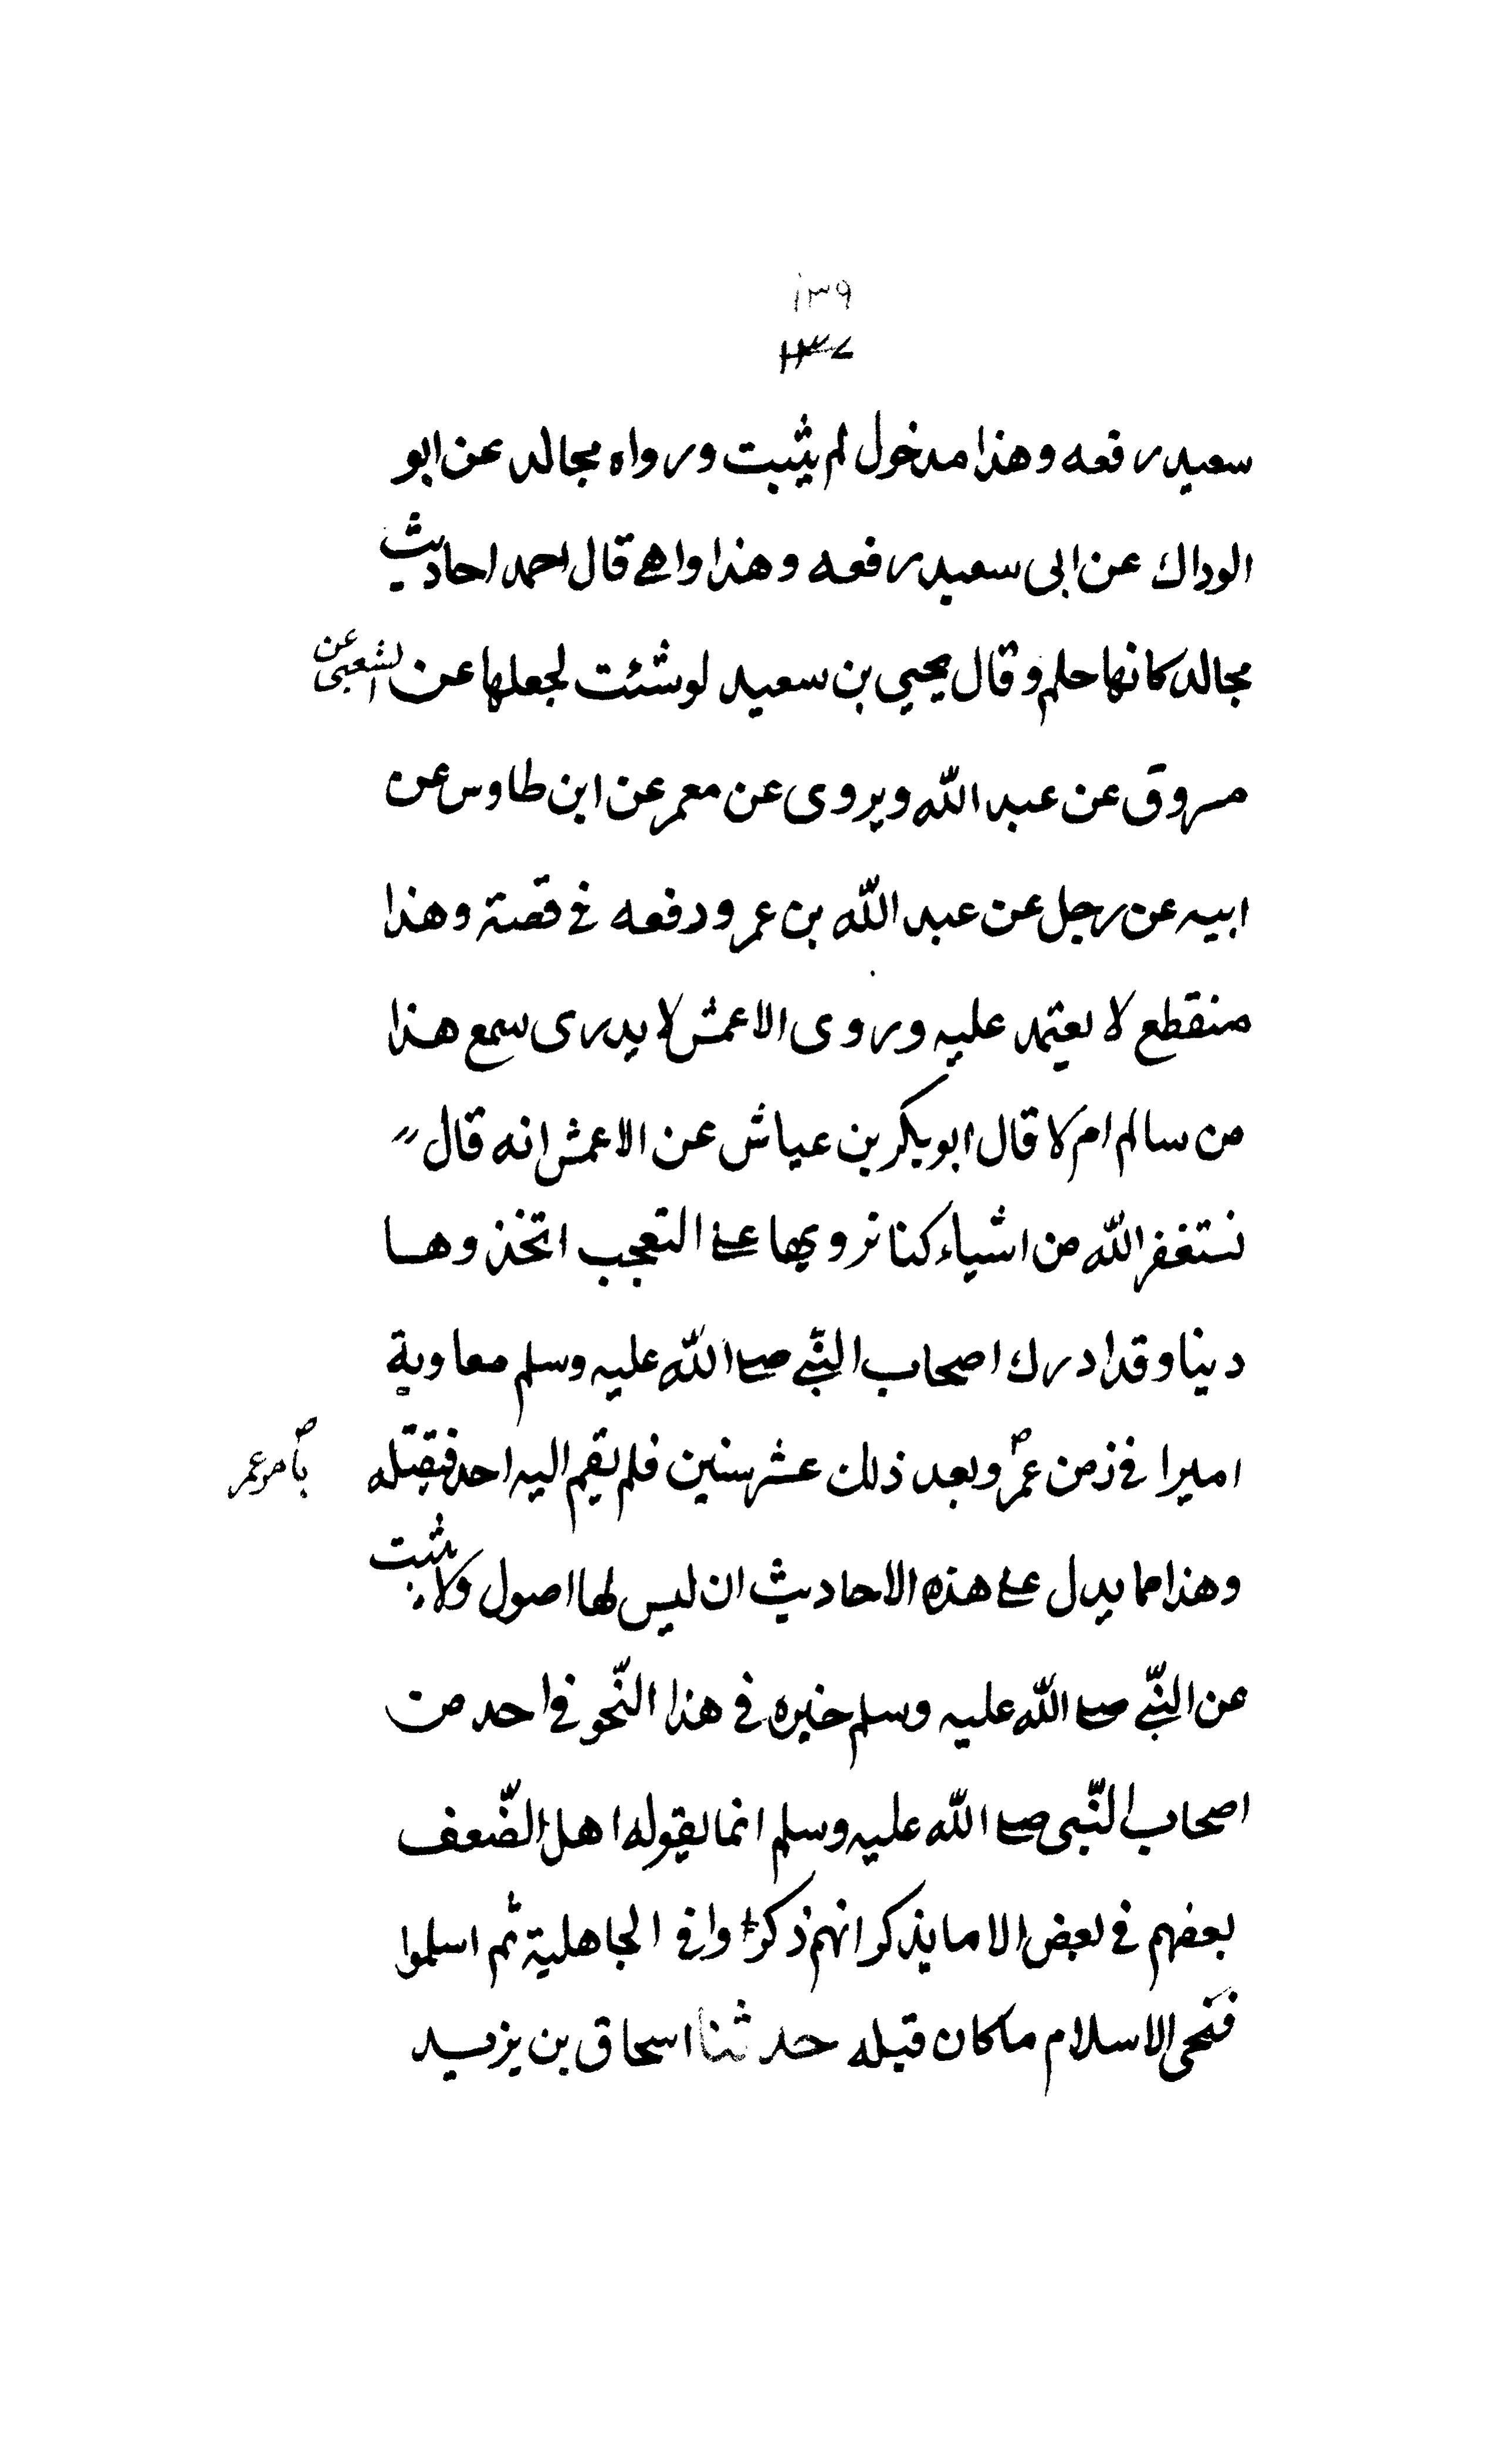 ١٣٩
١٣٧
سعيد رفعه وهذا مدخول لم يثبت ورواه مجالد عن ابو
الوداك عن ابى سعيد رفعه وهذا واهے قال احمد احاديث
مجالد كانها حلم وقال يحيي بن سعيد لو شئت لجعلها عن الشعبى عن
مسروق عن عبد اللّه ويروى عن معمر عن ابن طاوس عن
ابيه عن رجل عن عبد اللّه بن عمرو دفعه في قصته وهذا
منقطع لا يعتمد عليه وروى الاعمش لا يدرى سمع هذا
من سالم ام لا قال ابو بكر بن عياش عن الاعمش انه قال
نستغفر اللّه من اشياء كنا نرويها علے التعجب اتخذوها
دينا وقد ادرك اصحاب النّبے صلے اللّه عليه وسلم معاوية
اميرا في زمن عمر وبعد ذلك عشر سنين فلم يقم اليه احد فيقتله
بأمر عمر
وهذا مما يدل علے هذه الاحاديث ان ليس لها اصول ولا يثبت
عن النّبے صلے اللّه عليه وسلم خبره في هذا النّحو في احد من
اصحاب النّبى صلے اللّه عليه وسلم انما يقوله اهل الضّعف
بعضهم في بعض الا ما يذكر انهم ذكروا في الجاهلية ثم اسلموا
فمحى الاسلام ما كان قبله حدثنا اسحاق بن يزيد